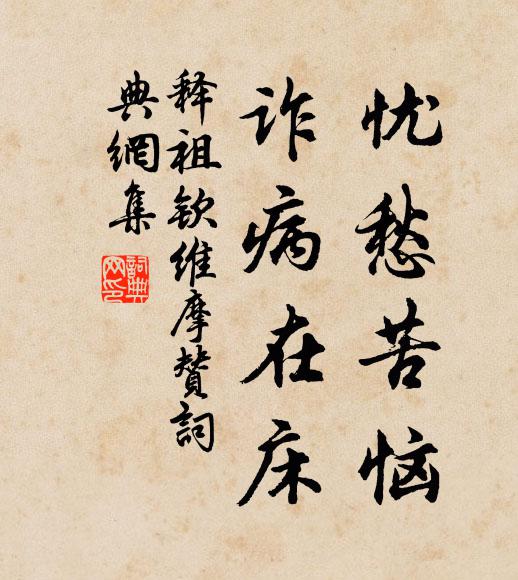 忧愁苦恼
诈病在床
释祖钦维摩赞词
典網集
詞典網印